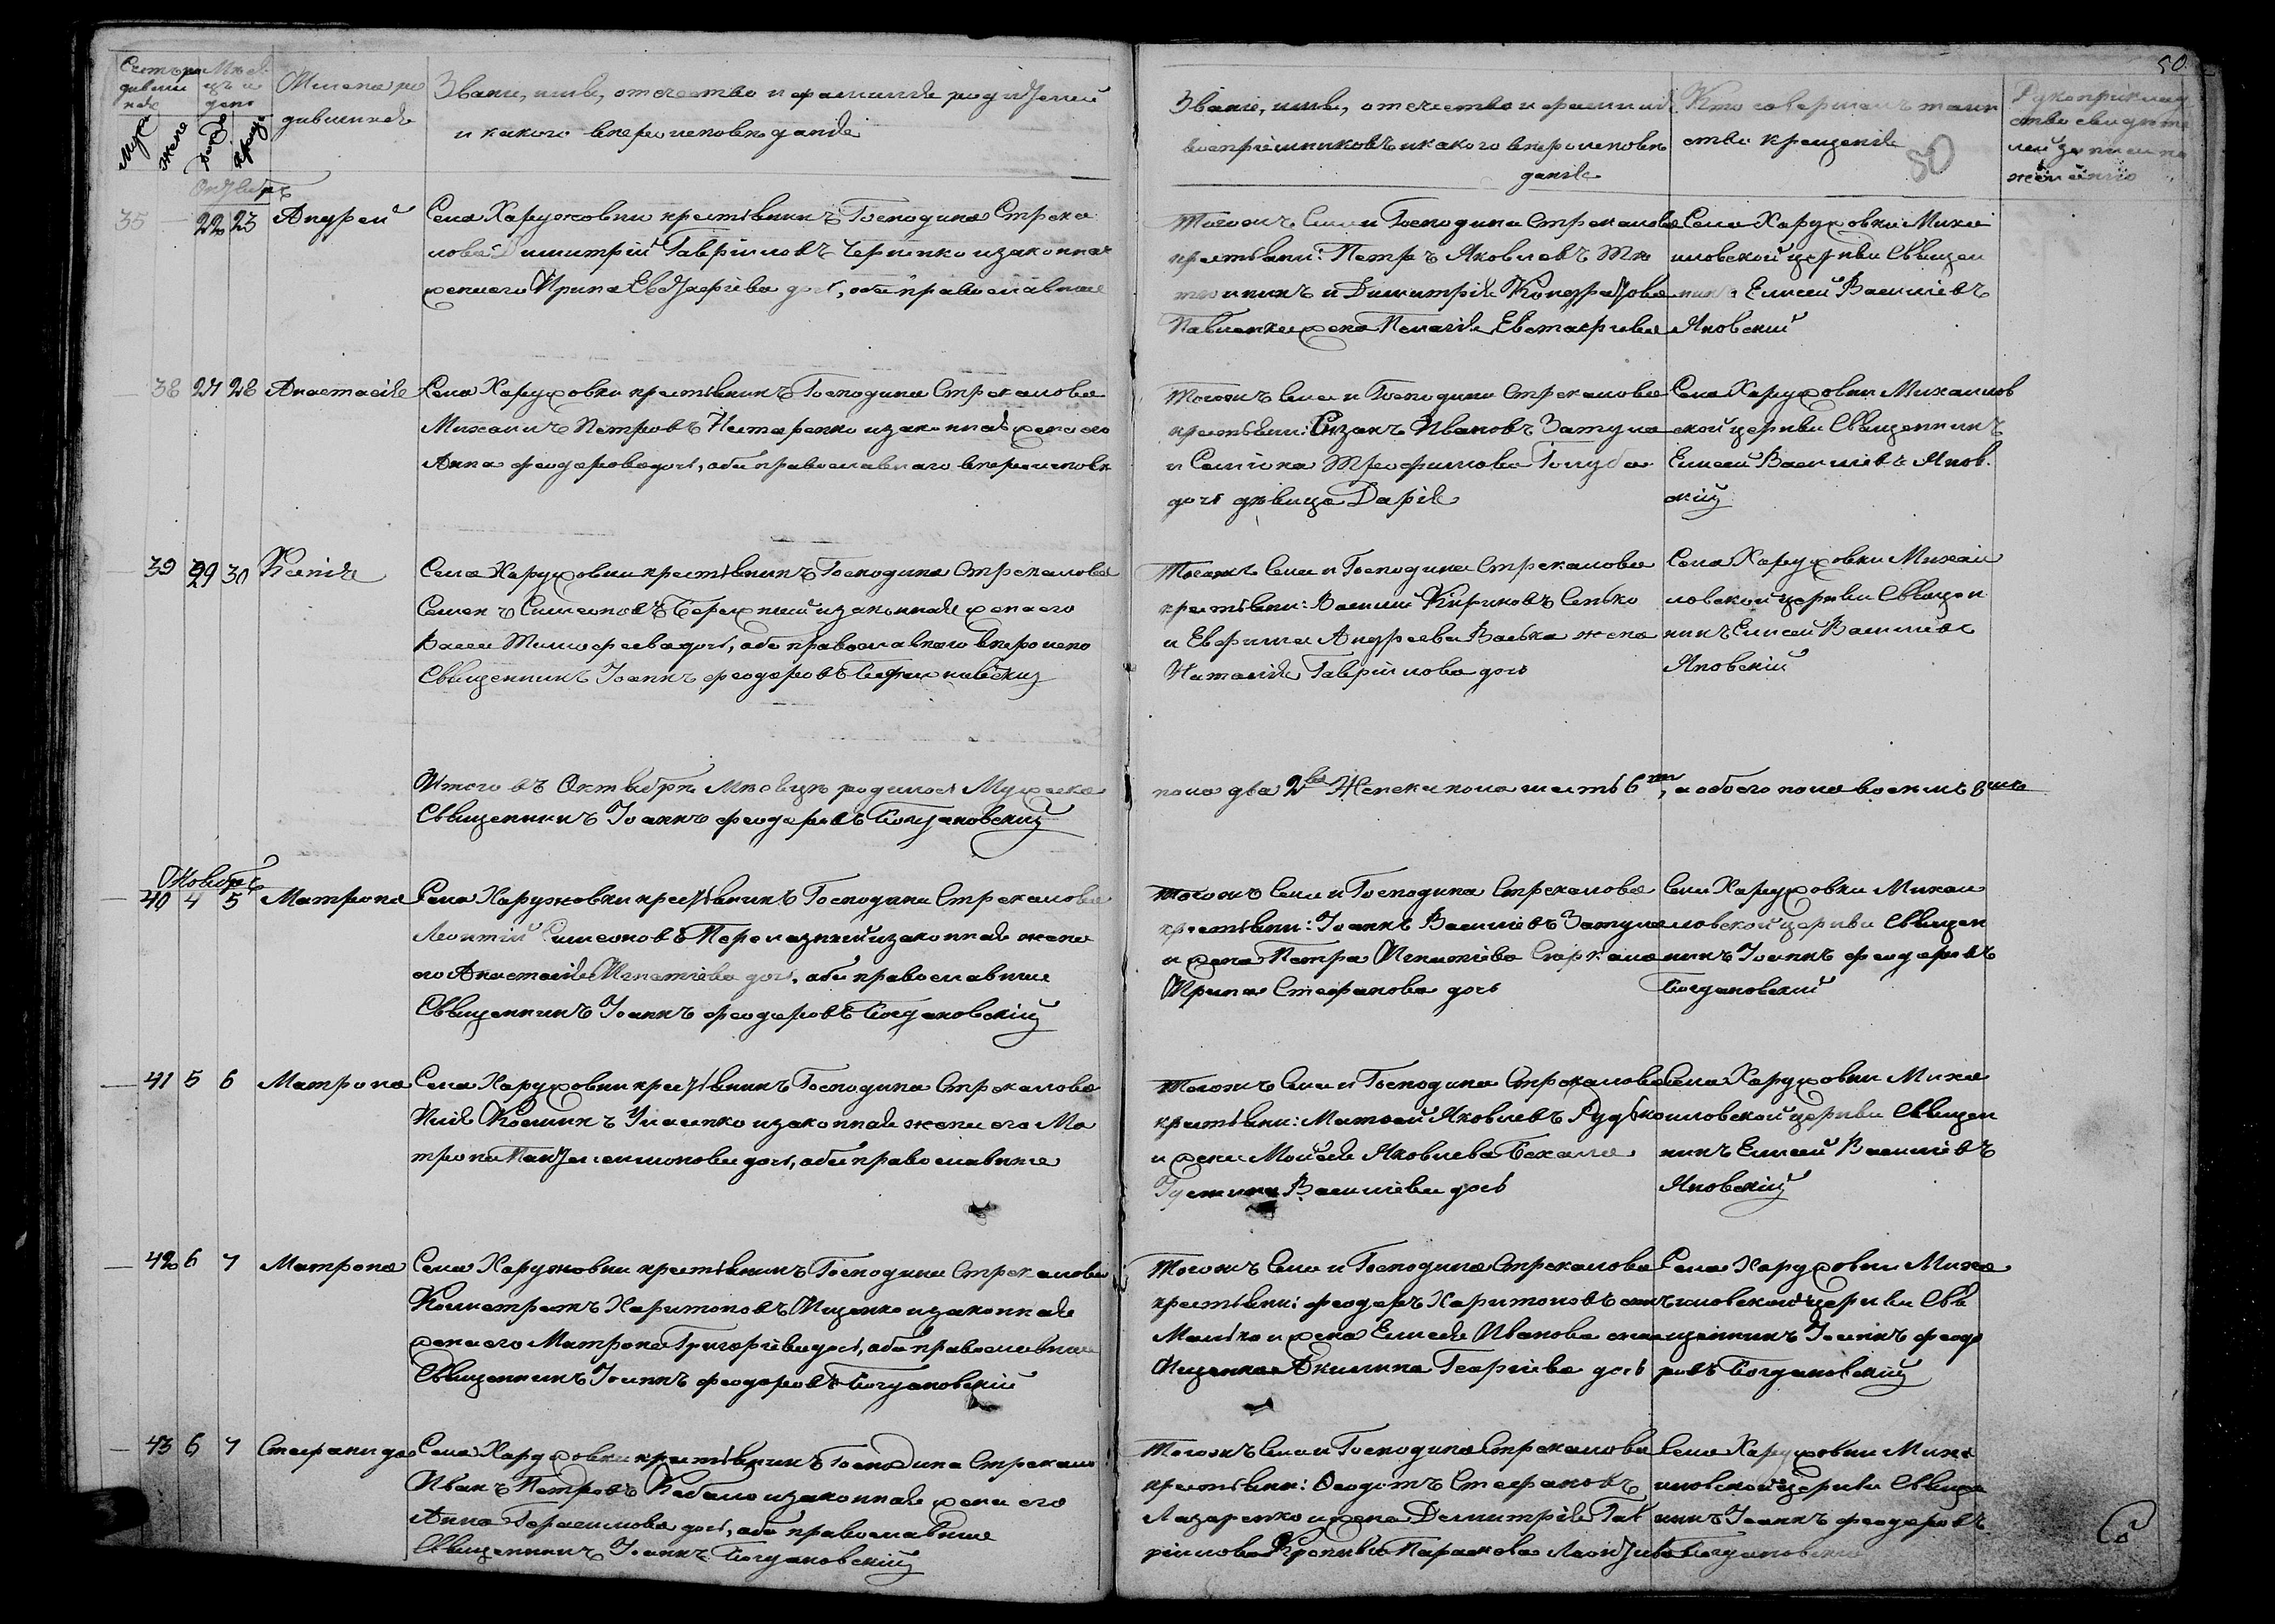 50.
50
Счетъ ро
дивших
ся
Мѣся
цъ и
день
Имена ро
дившихся
Званіе, имя, отечество и фамилія родителей
и какого вѣроисповѣданія
Мужес
женс
Рожд
Крещ
Званіе, имя, отечество и фамилія
воспріемниковъ и какого вѣроисповѣ
данія
Кто совершалъ таин
ство крещенія
Рукоприклад
ство свидѣте
лей записи по
желанію
Октябрь
35 22 23 Андрей
Села Харужовки крестьянинъ Господина Стрека
лова Димитрій Гавріиловъ Черненко и законная
жена его Ирина Евстафіева дочь, оба православные
Тогожъ села и Господина Стрекалова
крестьяни: Петръ Яковлевъ
и Димитрія Кондратова
Павленка жена Пелагія Евстафіева
Села Харужовки Михаи
иловской церкви Священ
никъ Елисей Василіевъ
Яновскій
38 27 28 Анастасія
Села Харужовки крестьянинъ Господина Стрекалова
Михаилъ Петровъ Нестеренко и законная жена его
Анна Феодорова дочь, оба православнаго вѣроисповѣ
Тогожъ села и Господина Стрекалова
крестьяни: Ивановъ Затула
и Семіона Трофимова Голуба
дочь дѣвица Дарія
Села Харужовки Михаилов
ской церкви Священникъ
Елисей Василіевъ Янов
скій
39 29 30 Ксенія
Села Харужовки крестьянинъ Господина Стрекалова
Семенъ Симеоновъ Бережный и законная жена его
Васса Тимофеева дочь, оба православнаго вѣроиспо
Священникъ Іоаннъ Феодоровъ
Тогожъ села и Господина Стрекалова
крестьяни: Василій Кириковъ Сенько
и Евфима Андреева Васька жена
Наталія Гавріилова дочь
Села Харужовки Михаи
ловской церкви Священ
никъ Елисей Василіевъ
Яновскій
Итого въ Октябрѣ Мѣсяцѣ родилось Мужеска
пола два 2ва Женска пола шесть 6ть, а обоего пола восемь 8мь
Священникъ Іоаннъ Феодоровъ Богдановскій
Новябрь
40 4 5 Матрона
Села Харужовки крестьянинъ Господина Стрекалова
Леонтій Симеоновъ Перелазный и законная жена
его Анастасія Игнатіева дочь, оба православные
Священникъ Іоаннъ Феодоровъ Богдановскій
Тогожъ села и Господина Стрекалова
крестьяни: Іоаннъ Василіевъ Затула
и жена Петра Игнатіева
Ирина Стефанова дочь
Села Харужовки Михаи
ловской церкви Священ
никъ Іоаннъ Феодоровъ
Богдановскій
41 5 6 Матрона
Села Харужовки крестьянинъ Господина Стрекалова
Илія Косминъ Уласенко и законная жена его Ма
трона Пантелеимонова дочь, оба православные
Тогожъ села и Господина Стрекалова
крестьяни: Матвей Яковлевъ Рудько
и жена Моисея Яковлева Бекала
Іустина Василіева дочь
Села Харужовки Миха
иловской церкви Священ
никъ Елисей Василіевъ
Яновскій
42 6 7 Матрона
Села Харужовки крестьянинъ Господина Стрекалова
Каллистратъ Харитоновъ Ищенко и законная
жена его Матрона Григоріева дочь, оба православные
Священникъ Іоаннъ Феодоровъ Богдановскій
Тогожъ села и Господина Стрекалова
крестьяни: Феодоръ Харитоновъ
и жена Елисея Иванова
Ищенка Акилина Георгіева дочь
Села Харужовки Миха
иловской церкви Свя
щенникъ Іоаннъ Феодо
ровъ Богдановскій
43 6 7 Стефанида
Села Харужовки крестьянинъ Господина Стрекало
Иванъ Петровъ Кабало и законная жена его
Анна Герасимова дочь, оба православные
Священникъ Іоаннъ Богдановскій
Тогожъ села и Господина Стрекалова
крестьяни: Феодотъ Стефановъ
Лазаренко и жена Димитрія Гав
ріилова Параскева
Села Харужовки Миха
иловской церкви Священ
никъ Іоаннъ Феодоровъ
Богдановскій